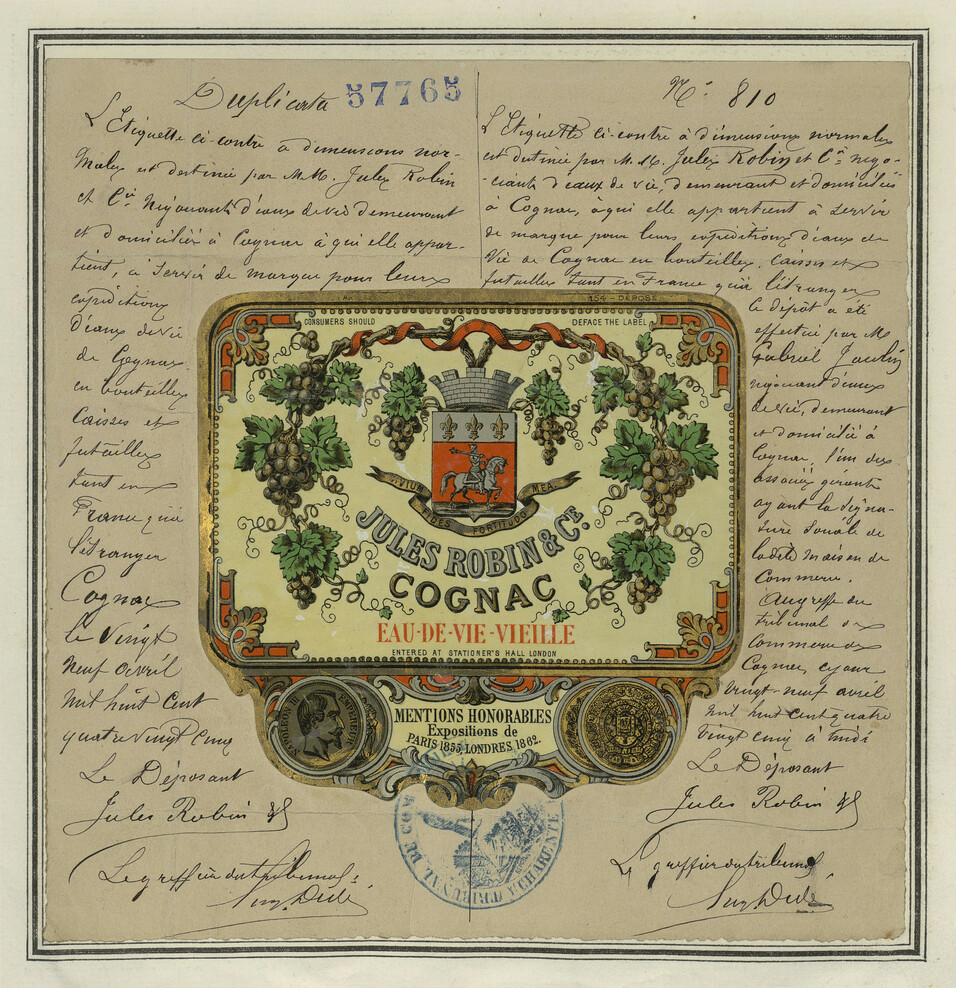 Duplicata 57765
L'Etiquette ci-contre à dimensions nor-
males est destinée par M.M. Jules Robin
et Cie Négociants d'eaux de vie demeurant
et domiciliés à Cognac à qui elle appar-
tient, à servir de marque pour leurs
expéditions
d'eaux de vie
de Cognac
en bouteilles
caisses et
futailles
tant en
France qu'à
l'étranger
Cognac
le vingt
neuf avril
mil huit cent
quatre vingt cinq
Le Déposant
Jules Robin &
Le greffier du tribunal
N° 810
L'Etiquette ci-contre à dimensions normales
est destinée par M.M. Jules Robin et Cie négo-
ciants d'eaux de vie, demeurant et domiciliés
à Cognac, à qui elle appartient à servir
de marque pour leurs expéditions d'eaux de
vie de Cognac en bouteilles, caisses et
futailles tant en France qu'à l'étranger
Le dépôt a été
effectué par M
Gabriel
négociant d'eaux
de vie, demeurant
et domicilié à
Cognac, l'un des
associés gérants
ayant la signa-
ture sociale de
ladite maison de
Commerce.
Au greffe du
tribunal de
Commerce de
Cognac, ce jour
vingt-neuf avril
mil huit cent quatre
vingt cinq à midi
Le Déposant
Jules Robin &
Le greffier du tribunal
154 - DEPOSÉ
CONSUMERS SHOULD DEFACE THE LABEL
VIVIU MEA
FIDES FORTITUDO
JULES ROBIN & CE.
COGNAC
EAU-DE-VIE-VIEILLE
ENTERED AT STATIONER'S HALL LONDON
NAPOLEON III EMPEREUR
MENTIONS HONORABLES
Expositions de
PARIS 1855, LONDRES, 1862.
TRIBUNAL DE CO CHARENTE